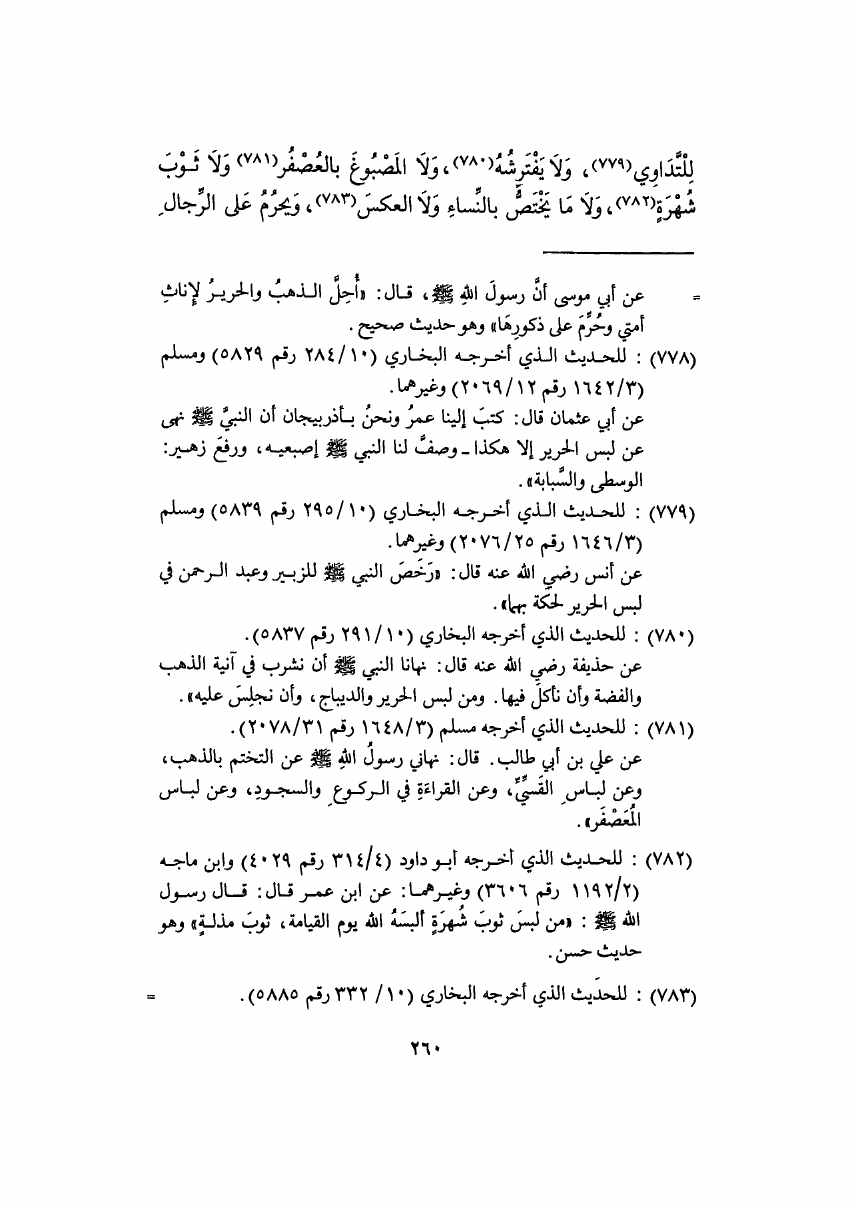 لِلْتَّدَاوِي(٧٧٩)، وَلَا يَفْتَرِشُهُ(٧٨٠)، وَلَا المَصْبُوغَ بالعُصْفُر(٧٨١) وَلَا ثَـوْبَ
شُهْرَةٍ(٧٨٢)، وَلَا مَا يَخْتَصُّ بالنِّساءِ وَلَا العكسَ(٧٨٣)، وَيحرُمُ عَلى الرِّجالِ
= عن أبي موسى أنَّ رسولَ اللهِ ﷺ، قـال: «أُحِلَّ الـذهبُ والحريـرُ لإناثِ
أمتي وحُرِّمَ على ذكورِهَا» وهو حديث صحيح.
(٧٧٨) : للحـديث الـذي أخـرجـه البخـاري (٢٨٤/١٠ رقم ٥٨٢٩) ومسلم
(١٦٤٢/٣ رقم ٢٠٦٩/١٢) وغيرهما.
عن أبي عثمان قال: كتبَ إلينا عمرُ ونحنُ بـأذربيجان أن النبيَّ ﷺ نهى
عن لبس الحرير إلا هكذا ـ وصفَّ لنا النبي ﷺ إصبعيـه، ورفعَ زهـير:
الوسطى والسَّبابة».
(٧٧٩) : للحـديث الـذي أخـرجـه البخـاري (٢٩٥/١٠ رقم ٥٨٣٩) ومسلم
(١٦٤٦/٣ رقم ٢٠٧٦/٢٥) وغيرهما.
عن أنس رضي الله عنه قال: «رَخَصَ النبي ﷺ للزبـير وعبد الـرحمن في
لبس الحرير لحكَة بهما».
(٧٨٠) : للحديث الذي أخرجه البخاري (٢٩١/١٠ رقم ٥٨٣٧).
عن حذيفة رضي الله عنه قال: نهانا النبي ﷺ أن نشرب في آنية الذهب
والفضة وأن نأكلَ فيها. ومن لبس الحرير والديباج، وأن نجلِسَ عليه».
(٧٨١) : للحديث الذي أخرجه مسلم (١٦٤٨/٣ رقم ٢٠٧٨/٣١).
عن علي بن أبي طالب. قال: نهاني رسولُ اللهِ ﷺ عن التختم بالذهب،
وعن لبـاسِ القَسيِّ، وعن القراءَةِ في الـركـوعِ والسجـودِ، وعن لبـاس
المُعَصْفَر».
(٧٨٢) : للحـديث الذي أخـرجه أبـو داود (٣١٤/٤ رقم ٤٠٢٩) وابن ماجـه
(١١٩٢/٢ رقم ٣٦٠٦) وغيـرهمـا: عن ابن عمـر قـال: قـال رسـول
الله ﷺ : «من لبسَ ثوبَ شُهرَةٍ ألبسَهُ الله يوم القيامة، ثوبَ مذلـةٍ» وهو
حديث حسن.
(٧٨٣) : للحدَيث الذي أخرجه البخاري (١٠/ ٣٣٢ رقم ٥٨٨٥). =
٢٦٠